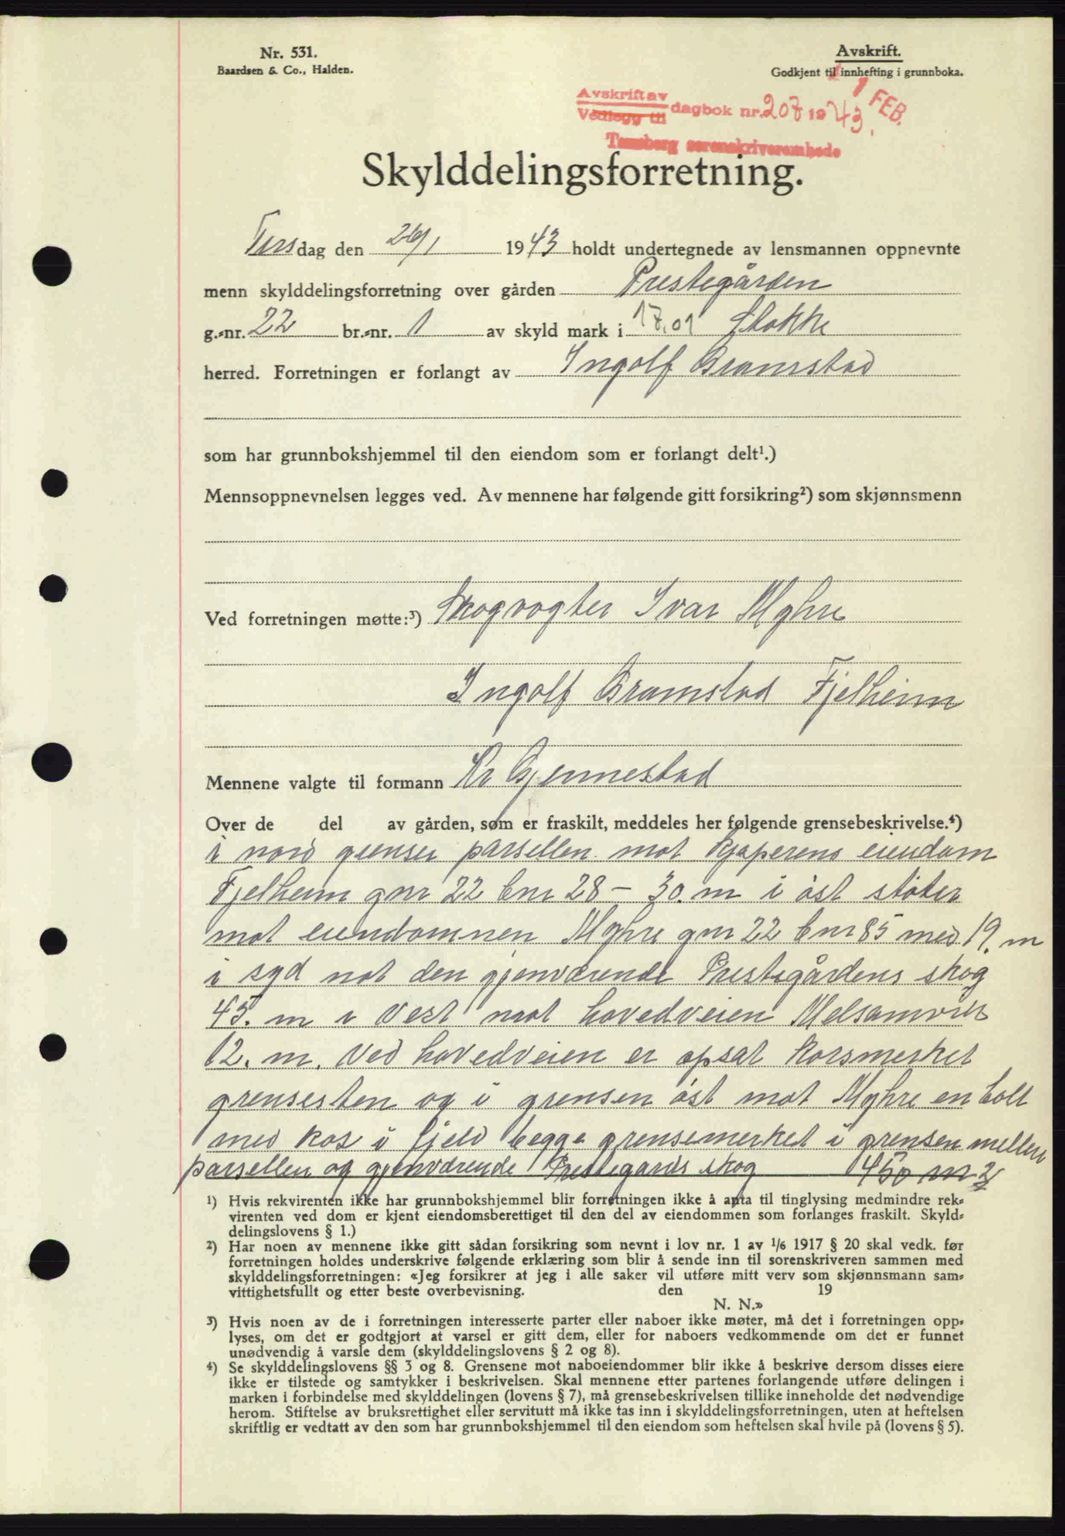 Nr. 531.
Baardsen & Co., Halden.
Avskrift.
Godkjent til innhefting i grunnboka.
Avskrift av
Vedlegg til dagbok nr. 207 1943. 1 FEB.
Tønsberg sorenskriverembede
Skylddelingsforretning.
Tirsdag den 26/1 1943 holdt undertegnede av lensmannen oppnevnte
menn skylddelingsforretning over gården Prestegården
g.-nr. 22 br.-nr. 1 av skyld mark i 17.01 Stokke
herred. Forretningen er forlangt av Ingolf Bramstad
som har grunnbokshjemmel til den eiendom som er forlangt delt¹.)
Mennsoppnevnelsen legges ved. Av mennene har følgende gitt forsikring²) som skjønnsmenn
Ved forretningen møtte:³) Skogvogter Ivar Myhre
Ingolf Bramstad Fjelheim
Mennene valgte til formann Kr Gjennestad
Over de del av gården, som er fraskilt, meddeles her følgende grensebeskrivelse.⁴)
i nord grenser parsellen mot kjøperens eiendom
Fjelheim gnr 22 bnr 28 – 30. m i øst støter
mot eiendommen Myhre gnr 22 bnr 85 med 19. m
i syd mot den gjenværende Prestegårdens skog
45. m i vest mot hovedveien Melsomvik
12. m. Ved hovedveien er opsat korsmerket
grensesten og i grensen øst mot Myhre en bolt
med kos i fjeld begge grensemerket i grensen mellem
parsellen og gjenværende Prestegårds skog 450 m 2
¹) Hvis rekvirenten ikke har grunnbokshjemmel blir forretningen ikke å anta til tinglysing medmindre rek-
virenten ved dom er kjent eiendomsberettiget til den del av eiendommen som forlanges fraskilt. Skyld-
delingslovens § 1.)
²) Har noen av mennene ikke gitt sådan forsikring som nevnt i lov nr. 1 av 1/6 1917 § 20 skal vedk. før
forretningen holdes underskrive følgende erklæring som blir å sende inn til sorenskriveren sammen med
skylddelingsforretningen: «Jeg forsikrer at jeg i alle saker vil utføre mitt verv som skjønnsmann sam-
vittighetsfullt og etter beste overbevisning. den 19
N. N.»
³) Hvis noen av de i forretningen interesserte parter eller naboer ikke møter, må det i forretningen opp-
lyses, om det er godtgjort at varsel er gitt dem, eller for naboers vedkommende om det er funnet
unødvendig å varsle dem (skylddelingslovens § 2 og 8).
⁴) Se skylddelingslovens §§ 3 og 8. Grensene mot naboeiendommer blir ikke å beskrive dersom disses eiere
ikke er tilstede og samtykker i beskrivelsen. Skal mennene etter partenes forlangende utføre delingen i
marken i forbindelse med skylddelingen (lovens § 7), må grensebeskrivelsen tillike inneholde det nødvendige
herom. Stiftelse av bruksrettighet eller servitutt må ikke tas inn i skylddelingsforretningen, uten at heftelsen
skriftlig er vedtatt av den som har grunnbokshjemmel til den eiendom som heftelsen skal hvile på (lovens § 5).